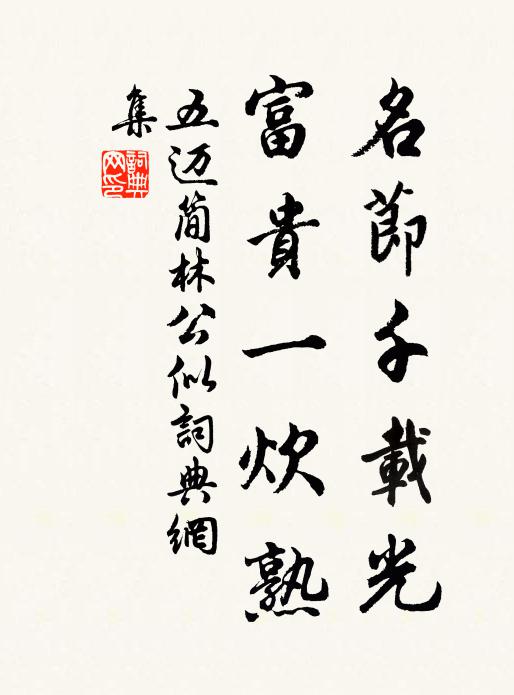 名節千載光
富貴一炊熟
五迈簡林公似詞典網
集
詞典
网印